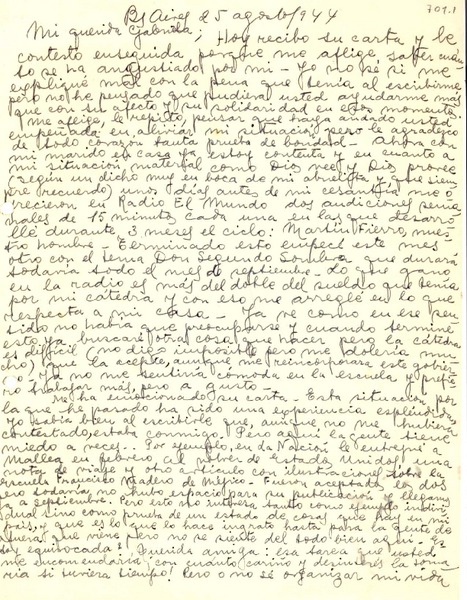 701.1
Bs Aires 25 agosto/944
Mi querida Gabriela; Hoy recibo su carta y le
contesto enseguida porque me aflige saber cuán-
to se ha angustiado por mi - Yo no sé si me
expliqué mal con la pena que tenía al escribirme
pero no he pensado que pudiera usted ayudarme más
que con su afecto y su solidaridad en esos momentos.
Me aflige, le repito, pensar que haya andado usted
empeñada en aliviar mi situación pero le agradezco
de todo corazón tanta prueba de bondad - Ahora con
mi marido en casa ya estoy contenta y en cuanto a
mi situación material como Dios
según un dicho muy en boca de mi abuelita y que siem-
pre recuerdo, unos días antes de mi cesantía me o-
frecieron en Radio El Mundo dos audiciones sema-
nales de 15 minutos cada una en las que desarro-
llé durante 3 meses el ciclo: Martín Fierro, nues-
tro hombre - Terminado esto empecé este mes
otro con el tema Don Segundo Sombra que durará
todavía todo el mes de septiembre - Lo que gano
en la radio es más del doble del sueldo que tenía
por mi cátedra y con eso me arreglo en lo que
respecta a mi casa - Ya ve como en ese sen-
tido no había que preocuparse y cuando termine
esto ya buscaré otra cosa que hacer pero la cátedra
es difícil (no digo imposible pero me dolería mu-
cho) que la acepte, aunque me reincorporase este gobier-
no. Ya no me sentiría cómoda en la escuela y prefie-
ro trabajar más, pero a gusto -
Me ha emocionado su carta - Esta situación por
la que he pasado ha sido una experiencia espléndida.
Yo sabía bien al escribirle que, aunque no me hubiera
contestado, estaba conmigo. Pero aquí la gente tiene
miedo a veces... Por ejemplo, en La Nación le entregué a
Mallea en febrero, al volver de Estados Unidos una
nota de viaje y otro artículo con ilustraciones sobre la
escuela Francisco Madero de Méjico - Fueron aceptadas las dos
pero todavía no hubo espacio para su publicación y llegamos
a septiembre. Pero esto no interesa tanto como ejemplo indivi-
dual sino como prueba de un estado de cosas que hay en mi
país, y que es lo que lo hace ingrato hasta para la gente de
afuera que viene pero no se siente del todo bien aquí - Es-
toy equivocada? Querida amiga: Esa tarea que usted
me encomendaría con cuánto cariño y desinterés la toma-
ría si tuviera tiempo! Pero o no sé organizar mi vida